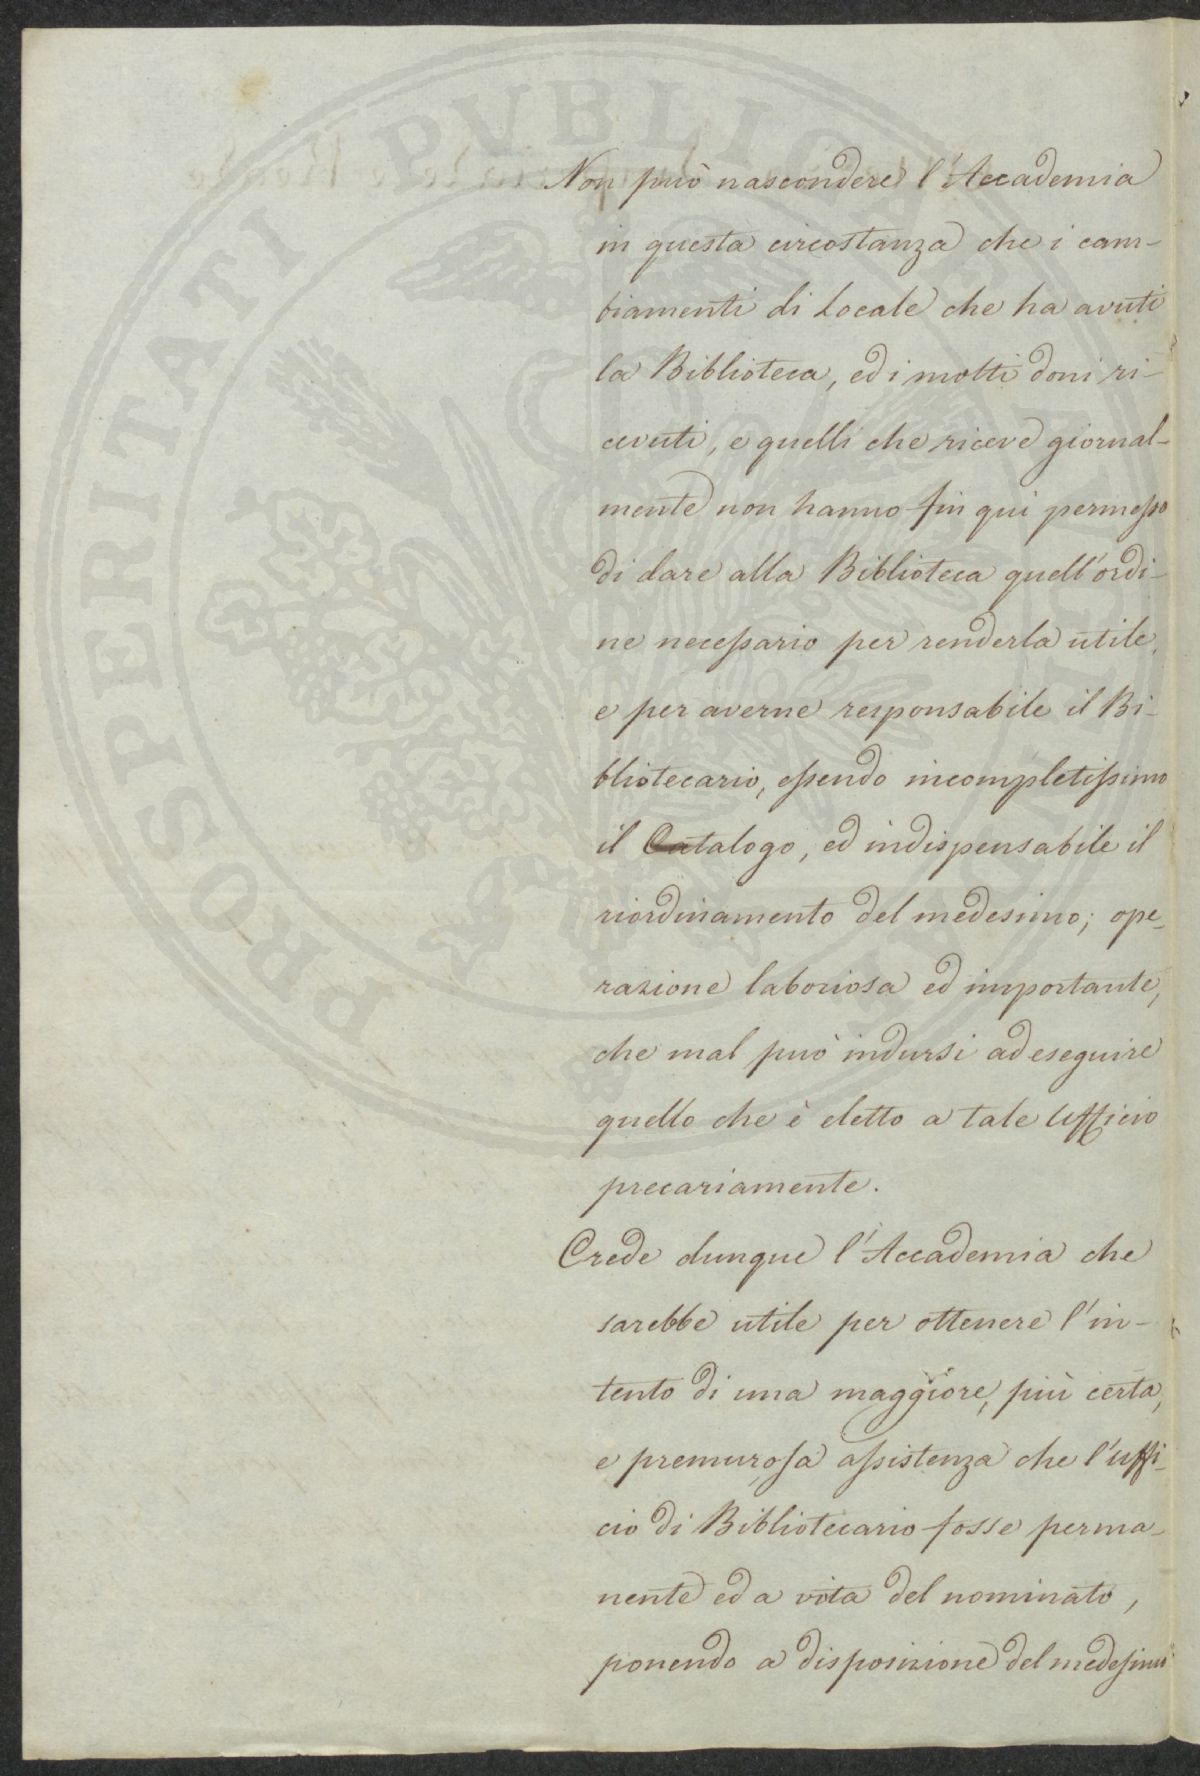 Non può nascondere l'Accademia
in questa circostanza che i cam-
biamenti di Locale che ha avuti
la Biblioteca, ed i molti doni ri-
cevuti, e quelli che riceve giornal-
mente non hanno fin qui permesso
di dare alla Biblioteca quell'ordi-
ne necessario per renderla utile,
e per averne responsabile il Bi-
bliotecario, essendo incompletissimo
il Catalogo, ed indispensabile il
riordinamento del medesimo; ope-
razione laboriosa ed importante,
che mal può indursi ad eseguire
quello che è eletto a tale Ufficio
precariamente.
Crede dunque l'Accademia che
sarebbe utile per ottenere l'in-
tento di una maggiore, più certa,
e premurosa assistenza che l'uffi-
cio di Bibliotecario fosse perma-
nente ed a vita del nominato,
ponendo a disposizione del medesimo
PROSPERITATI PVBLICAE